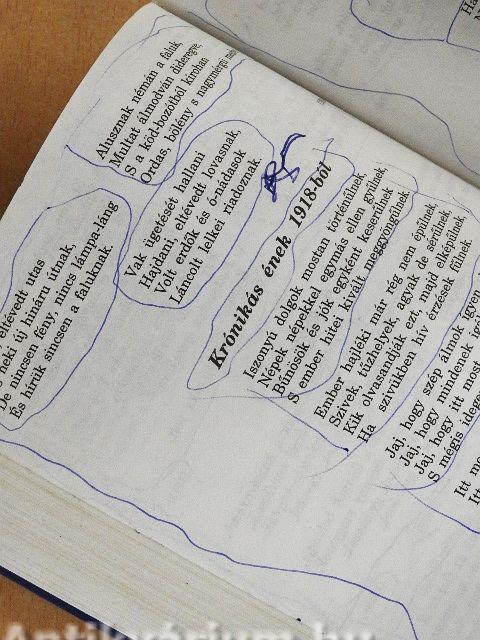 Alusznak némán a faluk
Multat álmodván dideregve,
S a köd-bozótból kirohan
Ordas, bölény s nagymérgü
Vak ügetését hallani
Hajdani, eltévedt lovasnak,
Volt erdők és ó-nádasok
Láncolt lelkei riadoznak.
eltévedt utas
neki új hináru útnak,
De nincsen fény, nincs lámpa-láng
És hírük sincsen a faluknak.
Krónikás ének 1918-ból
Iszonyú dolgok mostan történülnek,
Népek népekkel egymás ellen gyülnek,
Bűnösök és jók egyként keserülnek
S ember hitei kivált meggyöngülnek.
Ember hajléki már rég nem épülnek,
Szivek, tűzhelyek, agyak de sérülnek
Kik olvasandják ezt, majd elképülnek
Ha szivükben hív érzések fülnek.
Jaj, hogy szép álmok igyen
Jaj, hogy mindenek
Jaj, hogy itt most
S mégis
Itt
Antikvárium.hu